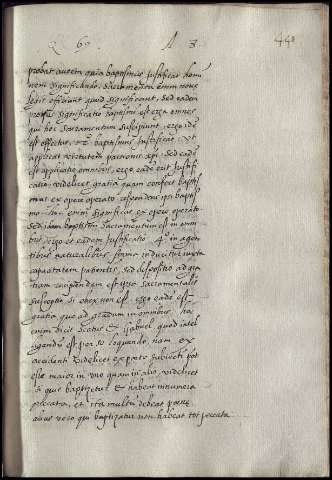 Q 69 A 3
probat autem quia baptismus Justificat homi
nem significando, sacramenta enim nove
legis efficiunt quod significant, sed eadem
significatio baptismi est erga omnes
qui hoc sacramentum suscipiunt, ergo idē
est effectus. baptismus Justificat ut
applicat virtutem passionis xpi, sed eadē
est applicatio omnibus, ergo eadē erit Justifi
catio, videlicet gratia quam confert baptis
mus ex opere operato respondens ipsi baptis
mo enim significat ex opere operato
sed idem baptismi sacramentum est in omni
bus ergo et eadem Justificatio 4º in agen
tibus naturalibus forma inducitur iuxta
capacitatem sed dispositio ad gra
tiam est ipse sacramentalis
susceptio si obex non est. ergo eadē est
gratia quo ad gradum in omnibus, ita
enim dicit Scotus & Gabriel quod intel
ligendū est per se loquendo, nam ex
accidenti videlicet ex parte subiecti pōt
esse maior in uno quam in alio, videlicet
si quis baptizetur & habeat innumera
peccata, et ita multū debeat poenae
alius vero qui baptizatur non habeat tot peccata